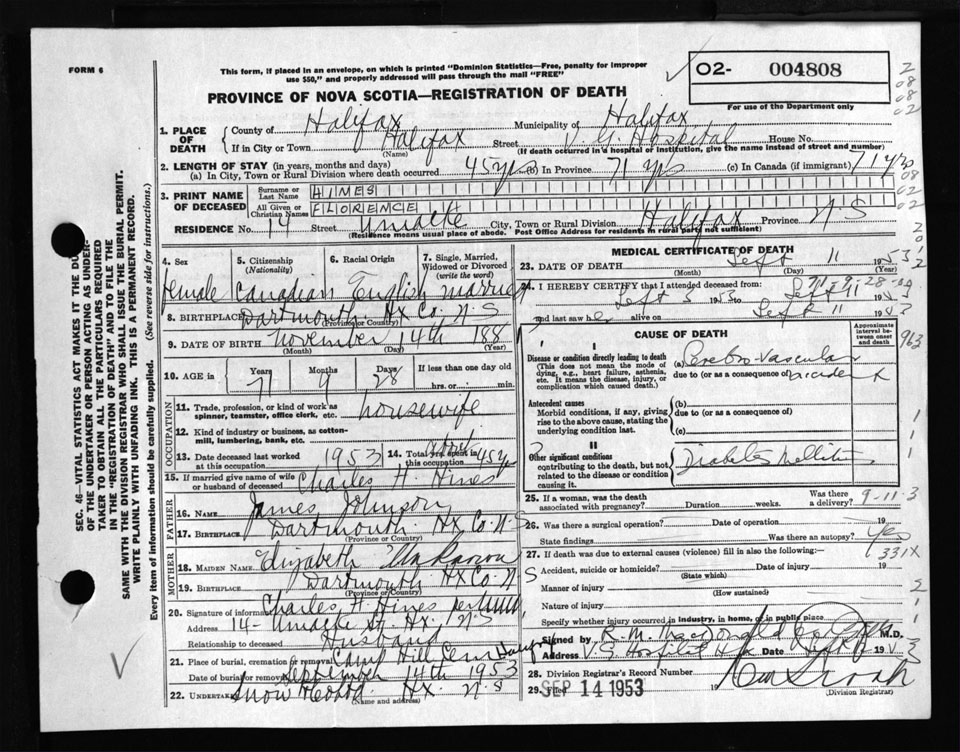 FORM 6
This form, if placed in an envelope, on which is printed "Dominion Statistics—Free, penalty for improper
use $50," and properly addressed will pass through the mail "FREE"
O2- 004808
For use of the Department only
PROVINCE OF NOVA SCOTIA—REGISTRATION OF DEATH
1. PLACE OF DEATH
County of Halifax Municipality of Halifax
If in City or Town Halifax Street V. G. Hospital House No.
(Name) (If death occurred in a hospital or institution, give the name instead of street and number)
2. LENGTH OF STAY (in years, months and days)
(a) In City, Town or Rural Division where death occurred 45 yrs (b) In Province 71 yrs (c) In Canada (if immigrant) 71 yrs
3. PRINT NAME OF DECEASED
Surname or Last Name HINES
All Given or Christian Names FLORENCE
RESIDENCE No. 14 Street Uniacke City, Town or Rural Division Halifax Province N.S
(Residence means usual place of abode. Post Office Address for residents in rural parts not sufficient)
4. Sex
Female
5. Citizenship
(Nationality)
Canadian
6. Racial Origin
English
7. Single, Married,
Widowed or Divorced
(write the word)
married
8. BIRTHPLACE Dartmouth Hx Co. N-S
(Province or Country)
9. DATE OF BIRTH November 14th 188
(Month) (Day) (Year)
10. AGE in Years 71 Months 9 Days 28
If less than one day old
hrs. or min.
OCCUPATION
11. Trade, profession, or kind of work as
spinner, teamster, office clerk, etc. housewife
12. Kind of industry or business, as cotton-
mill, lumbering, bank, etc.
13. Date deceased last worked
at this occupation 1953
14. Total yrs. spent in
this occupation 45 yrs
15. If married give name of wife
or husband of deceased Charles H. Hines
FATHER
16. Name James Johnson
17. Birthplace Dartmouth Hx Co. N-S
(Province or Country)
MOTHER
18. MAIDEN NAME Elizabeth Unknown
19. BIRTHPLACE Dartmouth Hx Co. N
(Province or Country)
20. Signature of informant Charles H. Hines per
Address 14- Uniacke St. Hx, N-S
Relationship to deceased Husband
21. Place of burial, cremation or removal Camp Hill Cem Halifax
Date of burial or removal September 14th 1953
22. Undertaker Snow Hx. N-S
(Name and address)
MEDICAL CERTIFICATE OF DEATH
23. DATE OF DEATH Sept 11 1953
(Month) (Day) (Year)
24. I HEREBY CERTIFY that I attended deceased from:
Sept 3 1953 Sept 11 1953
and last saw her alive on Sept 11 1953
71-9-28
CAUSE OF DEATH
Approximate
interval be-
tween onset
and death
I
Disease or condition directly leading to death
(This does not mean the mode of
dying, e.g., heart failure, asthenia,
etc. It means the disease, injury, or
complication which caused death.)
(a) Cerebro-Vascular
due to (or as a consequence of) accident
Antecedent causes
Morbid conditions, if any, giving
rise to the above cause, stating the
underlying condition last.
(b)
due to (or as a consequence of)
(c)
II
Other significant conditions
contributing to the death, but not
related to the disease or condition
causing it.
Diabetes Mellitus
25. If a woman, was the death
associated with pregnancy? Duration weeks. Was there
a delivery?
9-11-3
26. Was there a surgical operation? Date of operation 19
State findings Was there an autopsy? Yes
331X
27. If death was due to external causes (violence) fill in also the following:—
Accident, suicide or homicide? Date of injury 19
(State which)
Manner of injury
(How sustained)
Nature of injury
Specify whether injury occurred in industry, in home, or in public place
Signed by R. M. MacDonald M.D.
Address V.G. Hospital Hfx Date 19
28. Division Registrar's Record Number
29. Filed SEP 14 1953 19
(Division Registrar)
SEC. 46—VITAL STATISTICS ACT MAKES IT THE DUTY
OF THE UNDERTAKER OR PERSON ACTING AS UNDER-
TAKER TO OBTAIN ALL THE PARTICULARS REQUIRED
IN THE "REGISTRATION OF DEATH" AND TO FILE THE
SAME WITH THE DIVISION REGISTRAR WHO SHALL ISSUE THE BURIAL PERMIT.
WRITE PLAINLY WITH UNFADING INK. THIS IS A PERMANENT RECORD.
Every item of information should be carefully supplied. (See reverse side for instructions.)